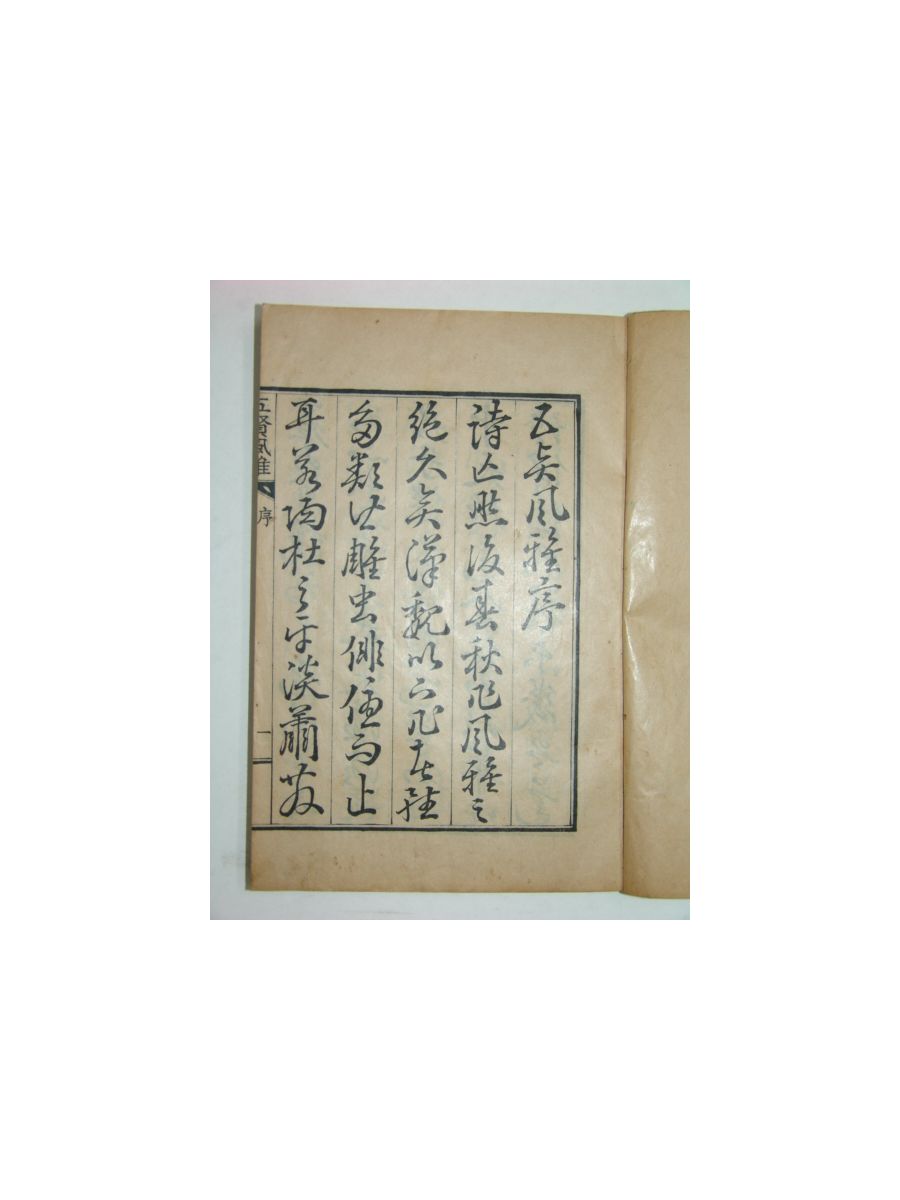 五賢風雅序
詩亡然後春秋作風雅之
絶久矣漢魏以下作者雖
多類雕虫俳優而止
耳若陶杜之平淡蕭散
五賢風雅 序 一